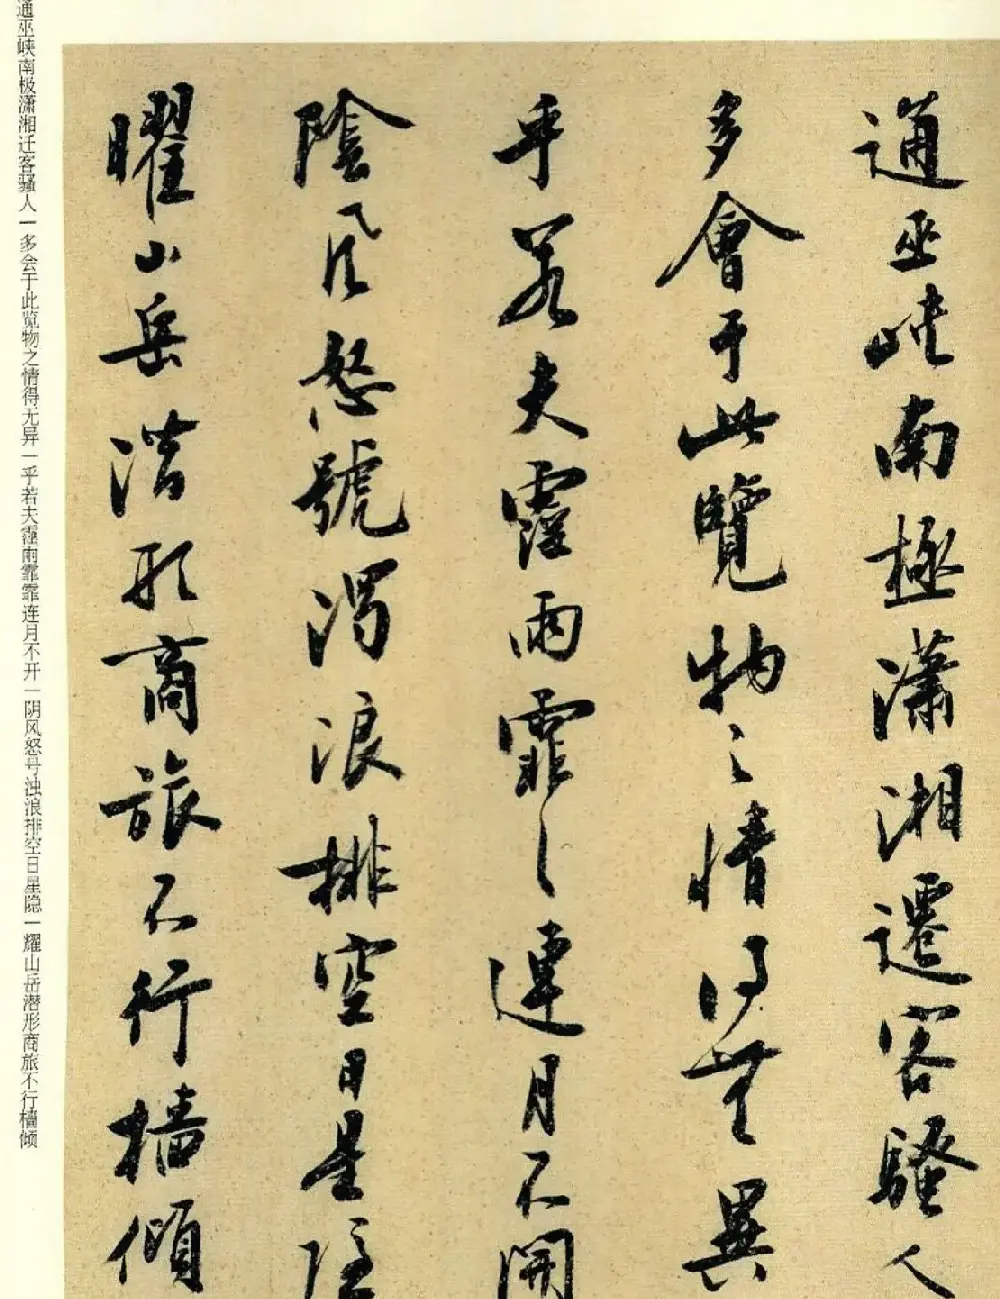 通巫峽南極瀟湘遷客騷人
多會于此覽物之情得無異
乎若夫霪雨霏〻連月不開
陰風怒號濁浪排空日星隱
曜山岳潛形商旅不行檣傾
通巫峡南极潇湘迁客骚人一多会于此览物之情得无异一乎若夫霪雨霏霏连月不开一阴风怒号浊浪排空日星隐一耀山岳潜形商旅不行樯倾